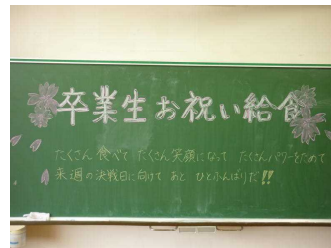 卒業生お祝い給食
たくさん 食べて たくさん 笑顔になって たくさんパワーをためて
来週の決戦日に向けて あと ひとふんばりだ!!